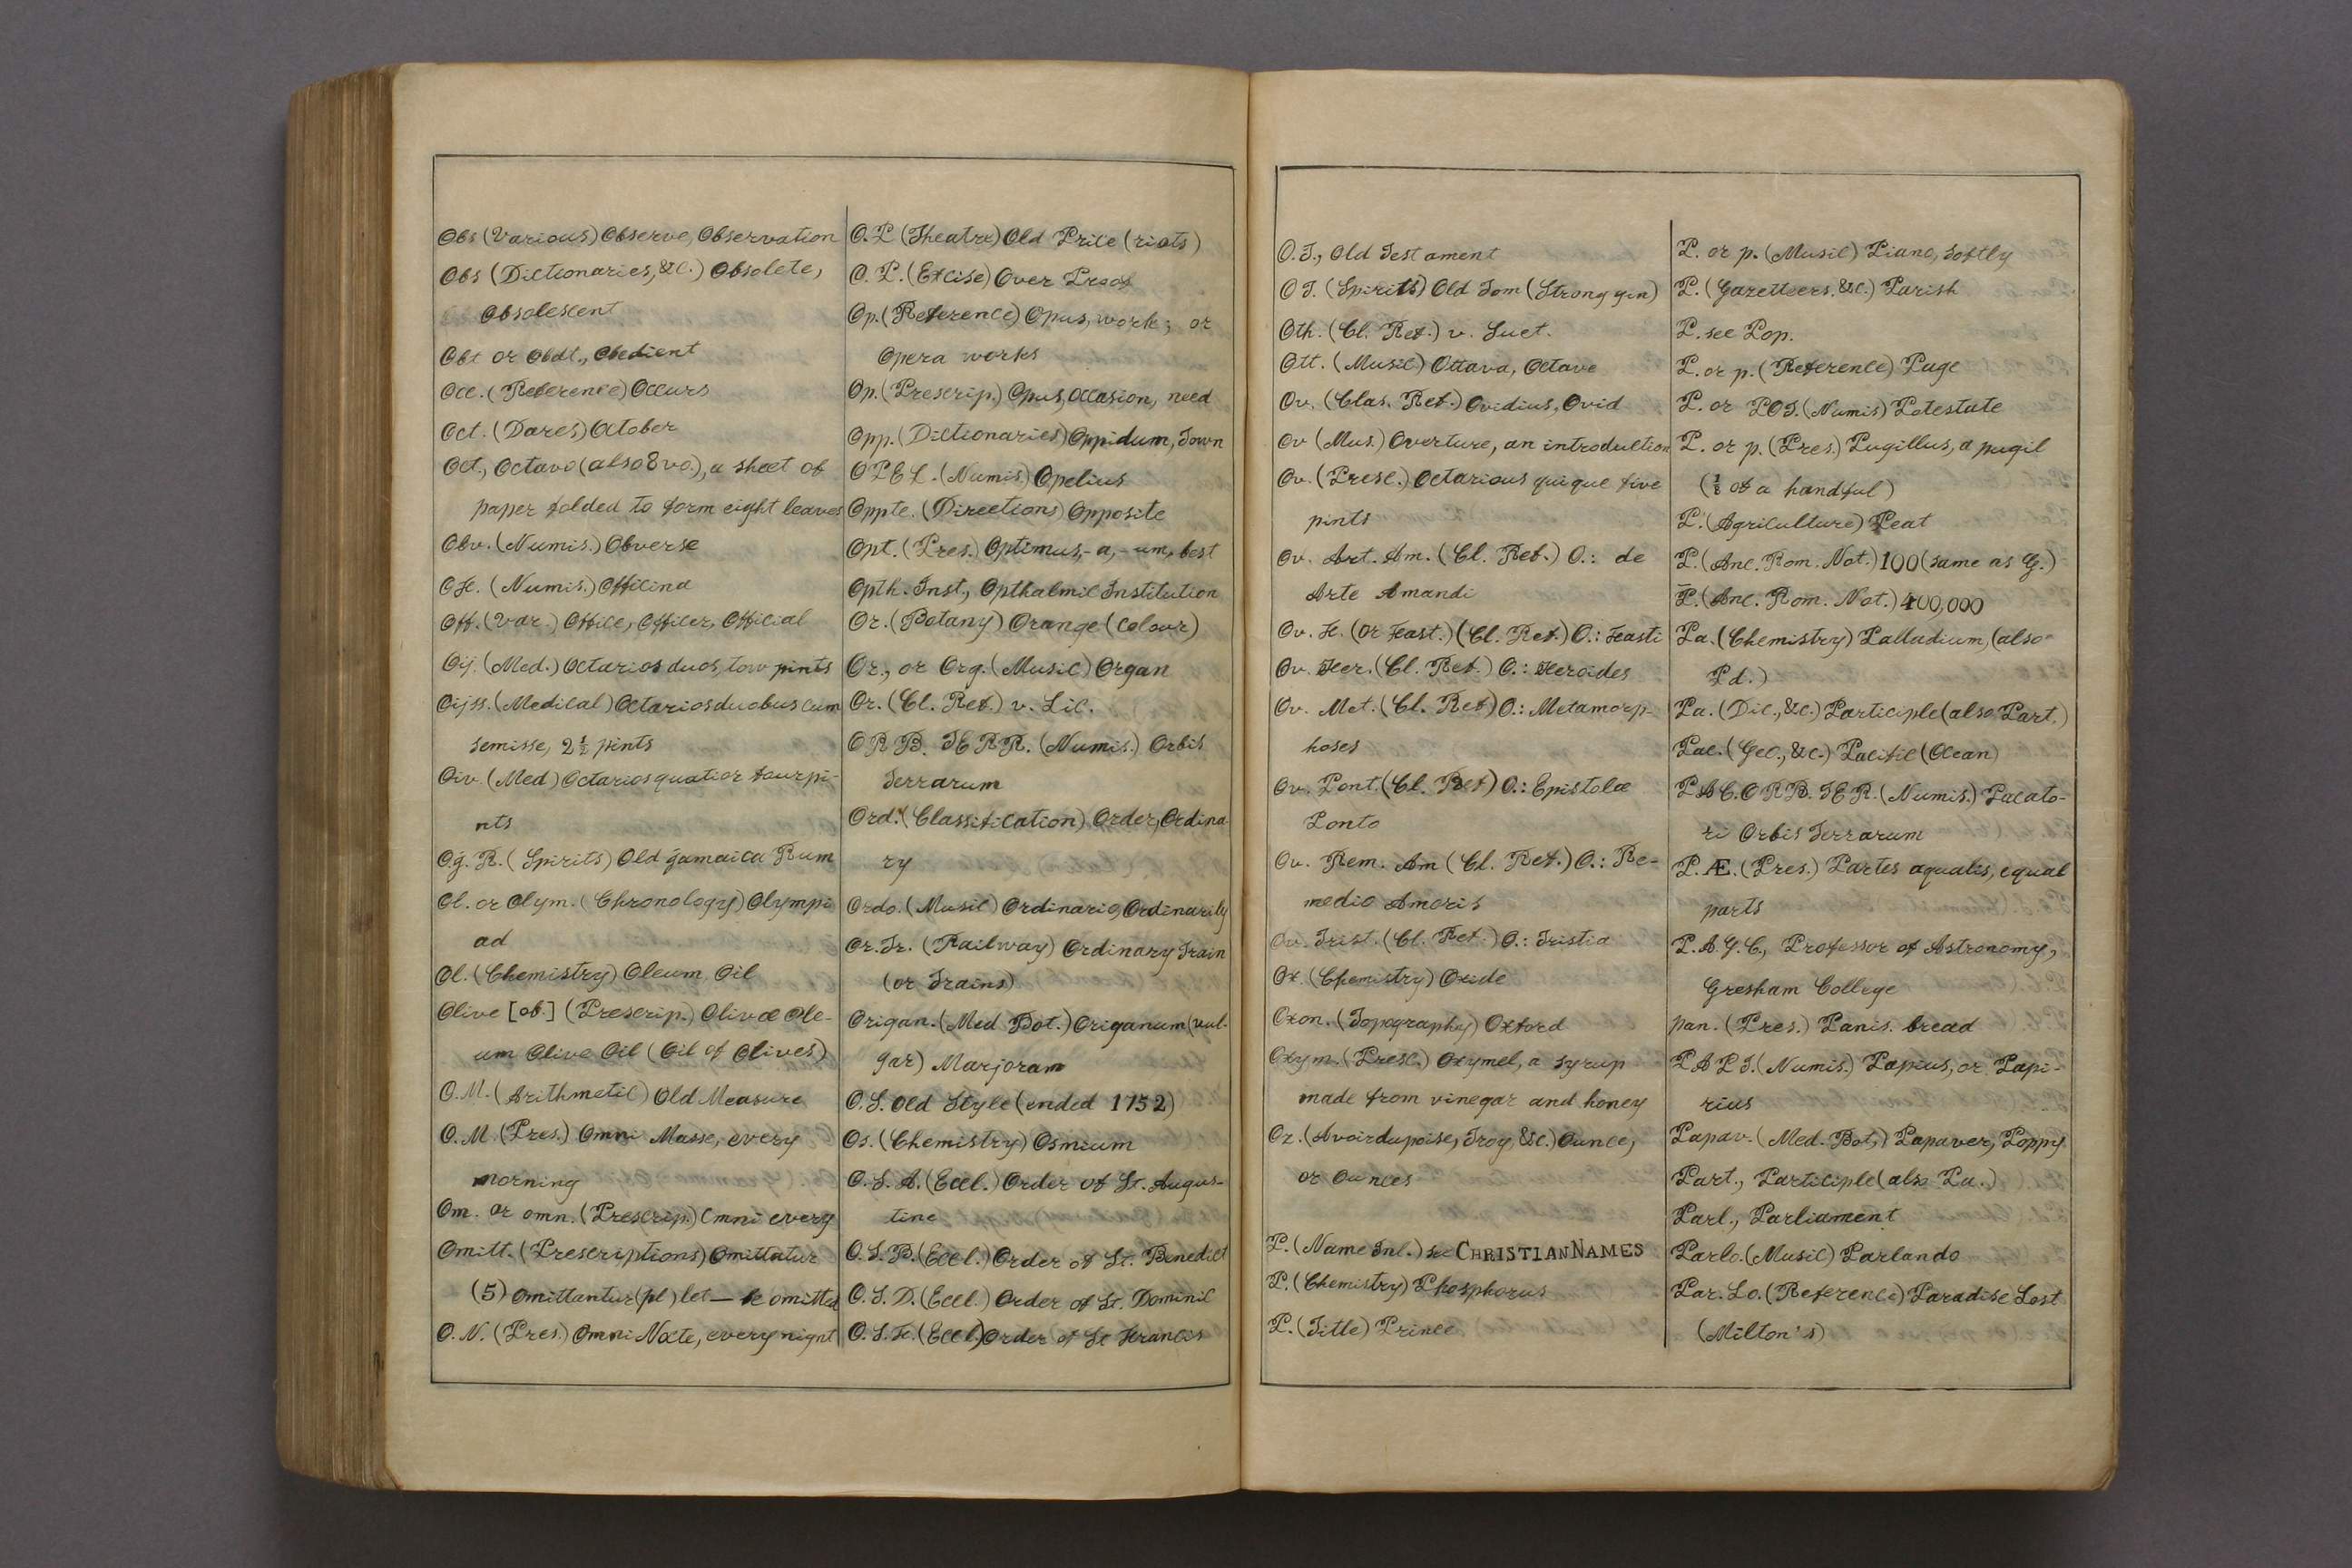 Obs (Various) Observe, Observation
Obs (Dictionaries, &c.) Obsolete,
Obsolescent
Obt or Obdt., Obedient
Occ. (Reference) Occurs
Oct. (Dares) October
Oct., Octavo (also 8vo.), a sheet of
paper folded to form eight leaves
Obv. (Numis.) Obverse
OF. (Numis.) Officina
Off. (Var.) Office, Officer, Official
Oij. (Med.) Octarios duos, tow pints
Oijss. (Medical) Octarios duobus cum
semisse, 2½ pints
Oiv. (Med) Octarios quatior four pi-
nts
O.J. R. (Spirits) Old Jamaica Rum
Ol. or Olym. (Chronology) Olympi
ad
Ol. (Chemistry) Oleum, Oil
Olive [ob.] (Prescrip.) Olivæ Ole-
um Olive Oil (Oil of Olives)
O.M. (Arithmetic) Old Measure
O.M. (Pres.) Omni Masse, every
morning
Om. or omn. (Prescrip.) Omni every
Omitt. (Prescriptions) Omittatur
(5) Omittantur (pl) let — be omitted
O.N. (Pres.) Omni Nocte, every night
O.P. (Theatre) Old Price (riots)
O.P. (Excise) Over Proof
Op. (Reference) Opus, work; or
Opera works
Op. (Prescrip.) Opus, Occasion, need
Opp. (Dictionaries) Oppidum, Town
OPEL. (Numis.) Opelius
Oppte. (Directions) Opposite
Opt. (Pres.) Optimus, -a, -um, best
Opth. Inst., Opthalmic Institution
Or. (Botany) Orange (Colour)
Or., or Org. (Music) Organ
Or. (Cl. Ref.) v. Lic.
ORB. TERR. (Numis.) Orbis
Terrarum
Ord. (Classification) Order, Ordina
ry
Ordo. (Music) Ordinario, Ordinarily
Or. Tr. (Railway) Ordinary Train
(or Trains)
Origan. (Med Bot.) Origanum (vul-
gar) Marjoram
O.S. Old Style (ended 1752)
Os. (Chemistry) Osmium
O.S.A. (Eccl.) Order of St. Augus-
tine
O.S.B. (Eccl.) Order of St. Benedict
O.S.D. (Eccl.) Order of St. Dominic
O.S.F. (Eccl.) Order of St Francis
O.T., Old Testament
OT. (Spirits) Old Tom (Strong gin)
Oth. (Cl. Ref.) v. Suet.
Ott. (Music) Ottava, Octave
Ov. (Clas. Ref.) Ovidius, Ovid
Ov (Mus.) Overture, an introduction
Ov. (Presc.) Octarious quique five
pints
Ov. Art. Am. (Cl. Ref.) O.: de
Arte Amandi
Ov. F. (or Fast.) (Cl. Ref.) O.: Feasti
Ov. Her. (Cl. Ref.) O.: Heroides
Ov. Met. (Cl. Ref) O.: Metamorp-
hoses
Ov. Pont. (Cl. Ref) O.: Epistolæ
Ponto
Ov. Rem. Am (Cl. Ref.) O.: Re-
medio Amoris
Ov. Trist. (Cl. Ref.) O.: Tristia
Ox. (Chemistry) Oxide
Oxon. (Topography) Oxford
Oxym. (Presc.) Oxymel, a syrup
made from vinegar and honey
Oz. (Avoirdupoise, Troy, &c.) Ounce,
or Ounces
P. (Name Inl.) see CHRISTIAN NAMES
P. (Chemistry) Phosphorus
P. (Title) Prince
P. or p. (Music) Piano, softly
P. (Gazetteers, &c.) Parish
P. see Pop.
P. or p. (Reference) Page
P. or POT. (Numis) Potestate
P. or p. (Pres.) Pugillus, a pugil
(⅛ of a handful)
P. (Agriculture) Peat
P. (Anc. Rom. Not.) 100 (same as G.)
P̄. (Anc. Rom. Not.) 400,000
Pa. (Chemistry) Palladium, (also
Pd.)
Pa. (Dic., &c.) Participle (also Part.)
Pac. (Geo., &c.) Pacific (Ocean)
PAC. ORB. TER. (Numis.) Pacato-
ri Orbis Terrarum
P. Æ. (Pres.) Partes aqualis, equal
parts
P.A.G.C., Professor of Astronomy,
Gresham College
pan. (Pres.) Panis. bread
PAPI. (Numis.) Papius, or Papi-
rius
Papav. (Med. Bot.,) Papaver, Poppy
Part., Participle (also Pa.)
Parl., Parliament
Parlo. (Music) Parlando
Par. Lo. (Reference) Paradise Lost
(Milton's)